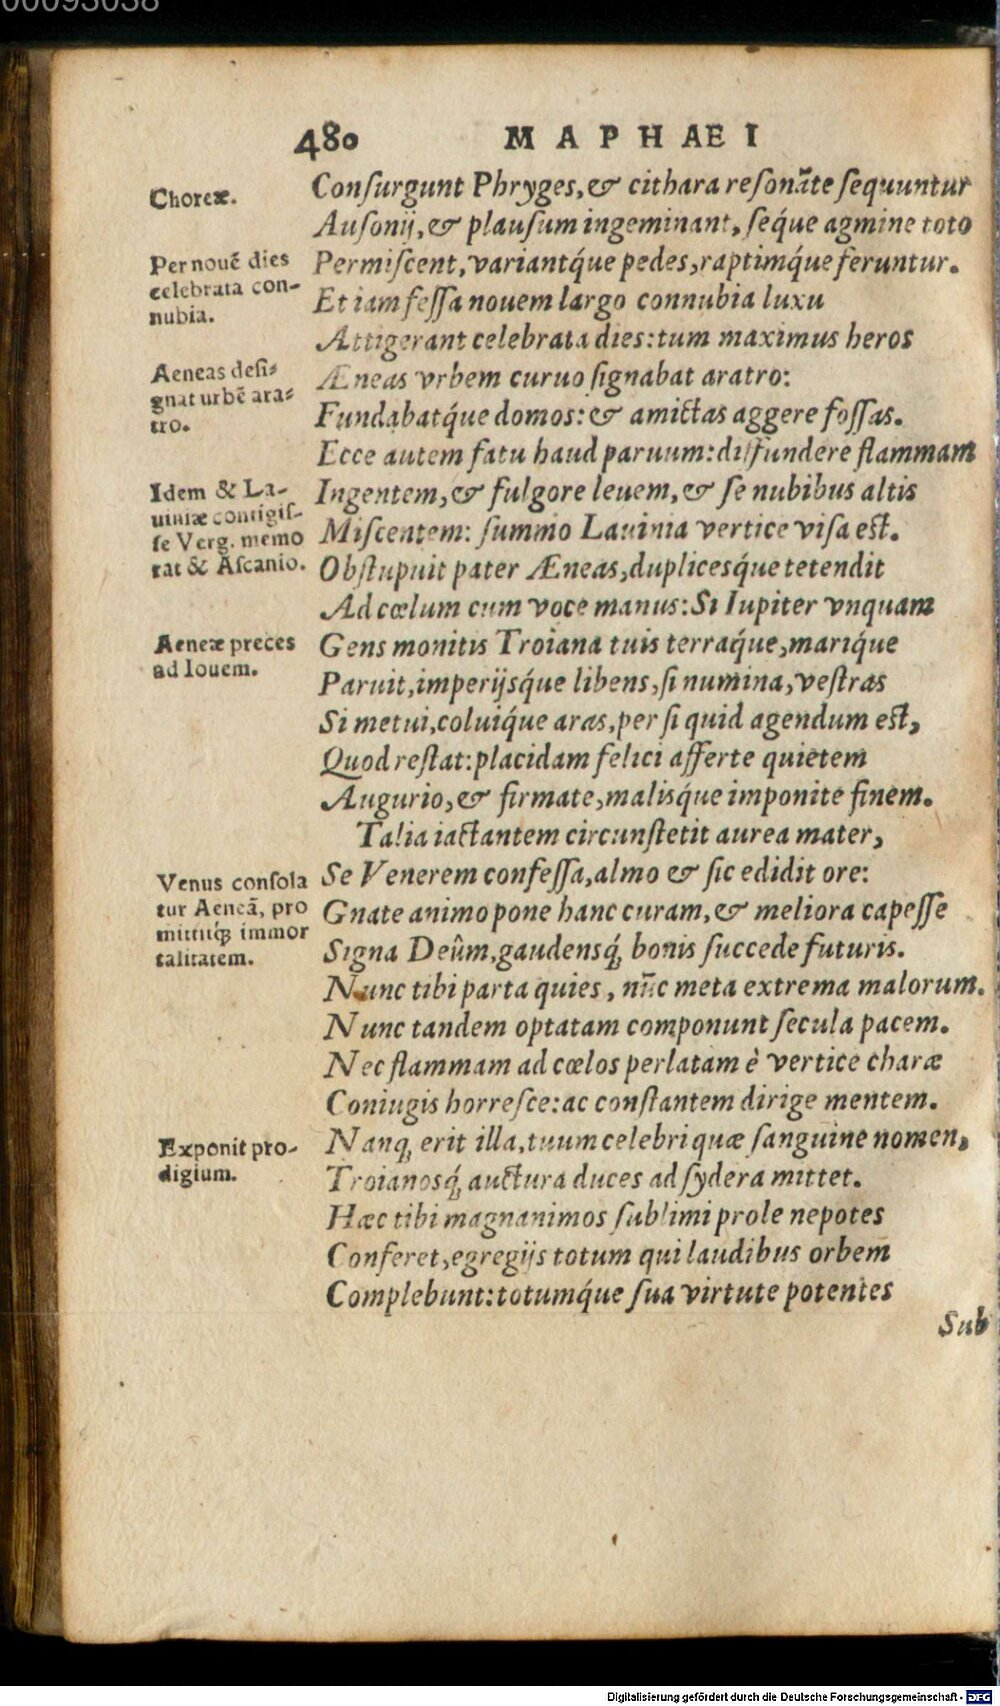 00093038
480 MAPHAEI
Choreæ.
Conſurgunt Phryges, & cithara reſonãte ſequuntur
Auſonij, & plauſum ingeminant, ſeq́ue agmine toto
Per nouẽ dies
celebrata con-
nubia.
Permiſcent, variantq́ue pedes, raptimq́ue feruntur.
Et iam feſſa nouem largo connubia luxu
Attigerant celebrata dies: tum maximus heros
Aeneas deſi-
gnat urbẽ ara-
tro.
Æneas vrbem curuo ſignabat aratro:
Fundabatq́ue domos: & amictas aggere foſſas.
Ecce autem fatu haud paruum: diffundere flammam
Idem & La-
uiniæ contigiſ-
ſe Verg. memo
rat & Aſcanio.
Ingentem, & fulgore leuem, & ſe nubibus altis
Miſcentem: ſummo Lauinia vertice viſa eſt.
Obſtupuit pater Æneas, duplicesq́ue tetendit
Ad cœlum cum voce manus: Si Iupiter vnquam
Aeneæ preces
ad Iouem.
Gens monitis Troiana tuis terraq́ue, mariq́ue
Paruit, imperijsq́ue libens, ſi numina, veſtras
Si metui, coluiq́ue aras, per ſi quid agendum eſt,
Quod reſtat: placidam felici afferte quietem
Augurio, & firmate, malisq́ue imponite finem.
Talia iactantem circunſtetit aurea mater,
Venus conſola
tur Aeneã, pro
mittitq́ꝫ immor
talitatem.
Se Venerem confeſſa, almo & ſic edidit ore:
Gnate animo pone hanc curam, & meliora capeſſe
Signa Deûm, gaudensq́ꝫ bonis ſuccede futuris.
Nunc tibi parta quies, nũc meta extrema malorum.
Nunc tandem optatam componunt ſecula pacem.
Nec flammam ad cœlos perlatam è vertice charæ
Coniugis horreſce: ac conſtantem dirige mentem.
Exponit pro-
digium.
Nanqꝫ erit illa, tuum celebri quæ ſanguine nomen,
Troianosq́ꝫ auctura duces ad ſydera mittet.
Hæc tibi magnanimos ſublimi prole nepotes
Conferet, egregijs totum qui laudibus orbem
Complebunt: totumq́ue ſua virtute potentes
Sub
Digitalisierung gefördert durch die Deutsche Forschungsgemeinschaft - DFG